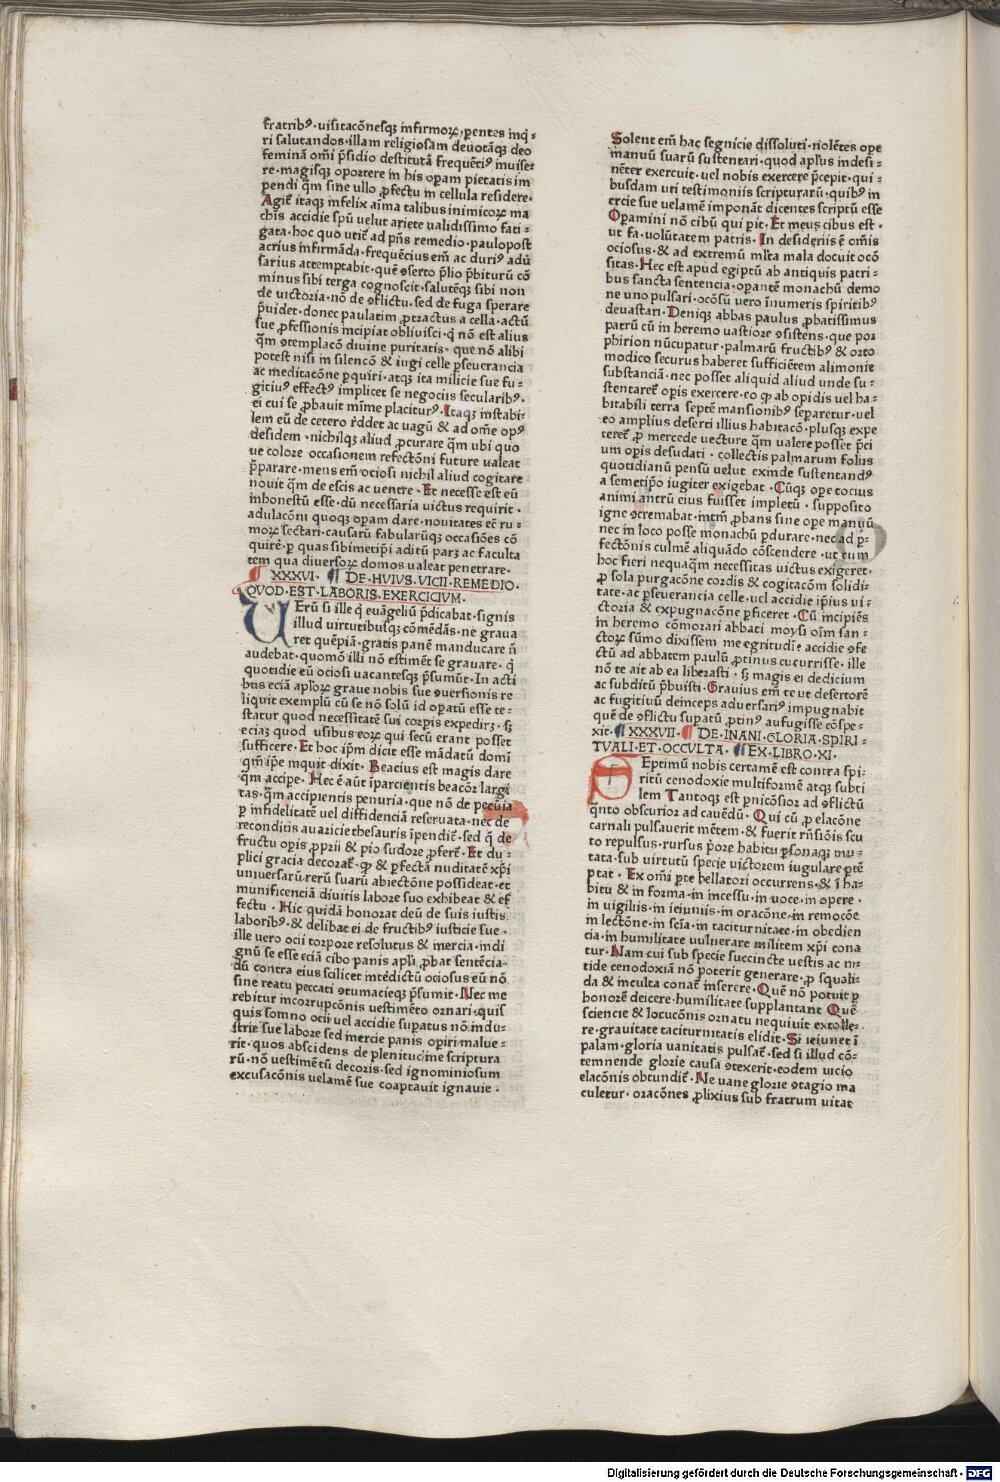 fratribꝰ·uisitacōnesqꝫ infirmoꝝ,ꝑentes inq̇ꝛ
ri salutandos·illam religiosam deuotāqꝫ deo
feminā om̄i p̄sidio destitutā frequētiꝰ inuiseꝛ
re·magisqꝫ oportere in his oꝑam pietatis im
pendi q̄m sine ullo ꝓfectu in cellula residere·
Agit̄ itaqꝫ infelix aīma talibus inimicoꝝ ma
chis accidie spū uelut ariete ualidissimo fatiꝛ
gata·hoc quo utit̄ ad pn̄s remedio·paulopost
acrius infirmāda·frequēcius em̄ ac duriꝰ adū
sarius attemptabit·quē ꝯserto p̄lio p̄biturū cō
minus sibi terga cognoscit·salutēqꝫ sibi non
de uictoria·nō de ꝯflictu·sed de fuga sperare
p̄uidet·donec paulatim ꝓtractus a cella·actū
sue ꝓfessionis incipiat obliuisci·q̄ nō est alius
q̄m ꝯtemplacō diuine puritatis·que nō alibi
potest nisi in silencō & iugi celle ꝑseuerancia
ac meditacōne ꝑquiri·atqꝫ ita milicie sue fuꝛ
gitiuꝰ effectꝰ implicet se negociis secularibꝰ·
ei cui se ꝓbauit mīme placiturꝰ·Itaqꝫ instabiꝛ
lem eū de cetero rd̄det ac uagū & ad om̄e opꝰ
desidem·nichilqꝫ aliud ꝓcurare q̄m ubi quo
ue colore occasionem refectōni future ualeat
p̄parare·mens em̄ ociosi nichil aliud cogitare
nouit q̄m de escis ac uentre·Et necesse est eū
inhonestū esse·dū necessaria uictus requirit·
adulacōni quoqꝫ oꝑam dare·nouitates ec̄ ruꝛ
moꝝ sectari·causarū fabularūqꝫ occasiōes cō
quirē·ꝑ quas sibimetip̄i aditū paret ac faculta
tem qua diuersoꝝ domos ualeat penetrare·
XXXVI· DE·HVIVS·VICII·REMEDIO·
QVOD·EST·LABORIS·EXERCICIVM·
VErū si ille q̄ euāgeliū p̄dicabat·signis
illud uirtutibusqꝫ cōmēdās·ne graua
ret quēpiā·gratis panē manducare n̄
audebat·quomō illi nō estimēt se grauare·q̄
quotidie eū ociosi uacantesqꝫ p̄sumūt·In acti
bus eciā aplōꝝ graue nobis sue ꝯuersionis re
liquit exemplū cū se nō solū id oꝑatū esse teꝛ
statur quod necessitatē sui corꝑis expedirꝫ·sꝫ
eciaꝫ quod usibus eoꝝ qui secū erant posset
sufficere·Et hoc ip̄m dicit esse mādatū domī
qm̄ ip̄e inquit dixit·Beacius est magis dare
q̄m accipe·Hec ē aūt ip̄arcientis beacōꝝ largi
tas·q̄m accipientis penuria·que nō de pecūia
ꝑ infidelitatē uel diffidenciā reseruata·nec de
reconditis auaricie thesauris ip̄endit̄·sed q̄ de
fructu oꝑis ꝓprii & pio sudore ꝓfert̄·Et duꝛ
plici gracia decorat̄·ꝙ & ꝑfectā nuditatē xp̄i
uniuersarū rerū suarū abiectōne possideat·et
munificenciā diuitis labore suo exhibeat & ef
fectu·Hic quidā honorat deū de suis iustis
laboribꝰ·& delibat ei de fructibꝰ iusticie sue·
ille uero ocii torpore resolutus & inercia·indi
gnū se esse eciā cibo panis apl̄i ꝓbat sentēciaꝛ
dū contra eius scilicet intēdictū ociosus eū nō
sine reatu peccati ꝯtumacieqꝫ p̄sumit·Nec me
rebitur incorrupcōnis uestimēto ornari·quis
quis somno ocii uel accidie suꝑatus nō induꝛ
strie sue labore sed inercie panis oꝑiri malueꝛ
rit·quos abscidens de plenitudine scriptura
rū·nō uestimētū decoris·sed ignominiosum
excusacōnis uelamē sue coaptauit ignauie·
Solent em̄ hac segnicie dissoluti·nolētes ope
manuū suarū sustentari·quod apl̄us indesiꝛ
nēter exercuit·uel nobis exercere p̄cepit·quiꝛ
busdam uti testimoniis scripturarū·quibꝰ in
ercie sue uelamē imponāt dicentes scriptū esse
Oꝑamini nō cibū qui ꝑit·Et meus cibus est·
ut fa·uolūtatem patris·In desideriis ē om̄is
ociosus·& ad extremū ml̄ta mala docuit ocō
sitas·Hec est apud egiptū ab antiquis patriꝛ
bus sancta sentencia·oꝑantē monachū demo
ne uno pulsari·ocōsū uero inumeris spiritibꝰ
deuastari·Deniqꝫ abbas paulus ꝓbatissimus
patrū cū in heremo uastiore ꝯsistens·que por
phirion nūcupatur·palmarū fructibꝰ & orto
modico securus haberet sufficiētem alimonie
substanciā·nec posset aliquid aliud unde suꝛ
stentaret̄ opis exercere·eo ꝙ ab opidis uel haꝛ
bitabili terra septē mansionibꝰ seꝑaretur·uel
eo amplius deserti illius habitacō·plusqꝫ expe
teret̄ ꝓ mercede uecture q̄m ualere posset p̄ci
um oꝑis desudati·collectis palmarum foliis
quotidianū pensū uelut exinde sustentandꝰ
a semetip̄o iugiter exigebat·Cūqꝫ ope tocius
animi antrū eius fuisset impletū·supposito
igne ꝯcremabat·intm̄ ꝓbans sine ope manuū
nec in loco posse monachū ꝑdurare·nec ad ꝑꝛ
fectōnis culmē aliquādo cōscendere·ut cum
hoc fieri nequaq̄m necessitas uictus exigeret·
ꝓ sola purgacōne cordis & cogitacōm solidiꝛ
tate·ac ꝑseuerancia celle·uel accidie ip̄ius uiꝛ
ctoria & expugnacōne ꝑficeret·Cū incipiēs
in heremo cōmorari abbati moysi oīm sanꝛ
ctoꝝ sūmo dixissem me egritudīe accidie ꝯfe
ctū ad abbatem paulū ꝓtinus cucurrisse·ille
nō te ait ab ea liberasti·sꝫ magis ei dedicium
ac subditū p̄buisti·Grauius em̄ te ut desertorē
ac fugitiuū deinceps aduersariꝰ impugnabit
quē de ꝯflictu suꝑatū ꝓtinꝰ aufugisse cōspeꝛ
xit· XXXVII· DE·INANI·GLORIA·SPIRIꝛ
TVALI·ET·OCCVLTA· EX·LIBRO·XI·
SEptimū nobis certamē est contra spiꝛ
ritū cenodoxie multiformē atqꝫ subti
lem Tantoqꝫ est ꝑnicōsior ad ꝯflictū
q̄nto obscurior ad cauēdū·Qui cū ꝓ elacōne
carnali pulsauerit mētem·& fuerit rn̄siōis scu
to repulsus·rursus p̄ore habitu ꝑsonaqꝫ muꝛ
tata·sub uirtutū specie uictorem iugulare ꝑtē
ptat·Ex om̄i ꝑte bellatori occurrens·& ī haꝛ
bitu & in forma·in incessu·in uoce·in opere·
in uigiliis·in ieiuniis·in oracōne·in remocōe
in lectōne·in scīa·in taciturnitate·in obedien
cia·in humilitate uulnerare militem xp̄i cona
tur·Nam cui sub specie succincte uestis ac ni
tide cenodoxiā nō poterit generare·ꝓ squaliꝛ
da & inculta conat̄ inserere·Quē nō potuit ꝑ
honorē deicere·humilitate supplantant Quē
sciencie & locucōnis ornatu nequiuit extolleꝛ
re·grauitate taciturnitatis elidit·Si ieiunet ī
palam·gloria uanitatis pulsat̄·sed si illud cōꝛ
temnende glorie causa ꝯtexerit·eodem uicio
elacōnis obtundit̄·Ne uane glorie ꝯtagio ma
culetur·oracōnes ꝓlixius sub fratrum uitat
Digitalisierung gefördert durch die Deutsche Forschungsgemeinschaft - DFG